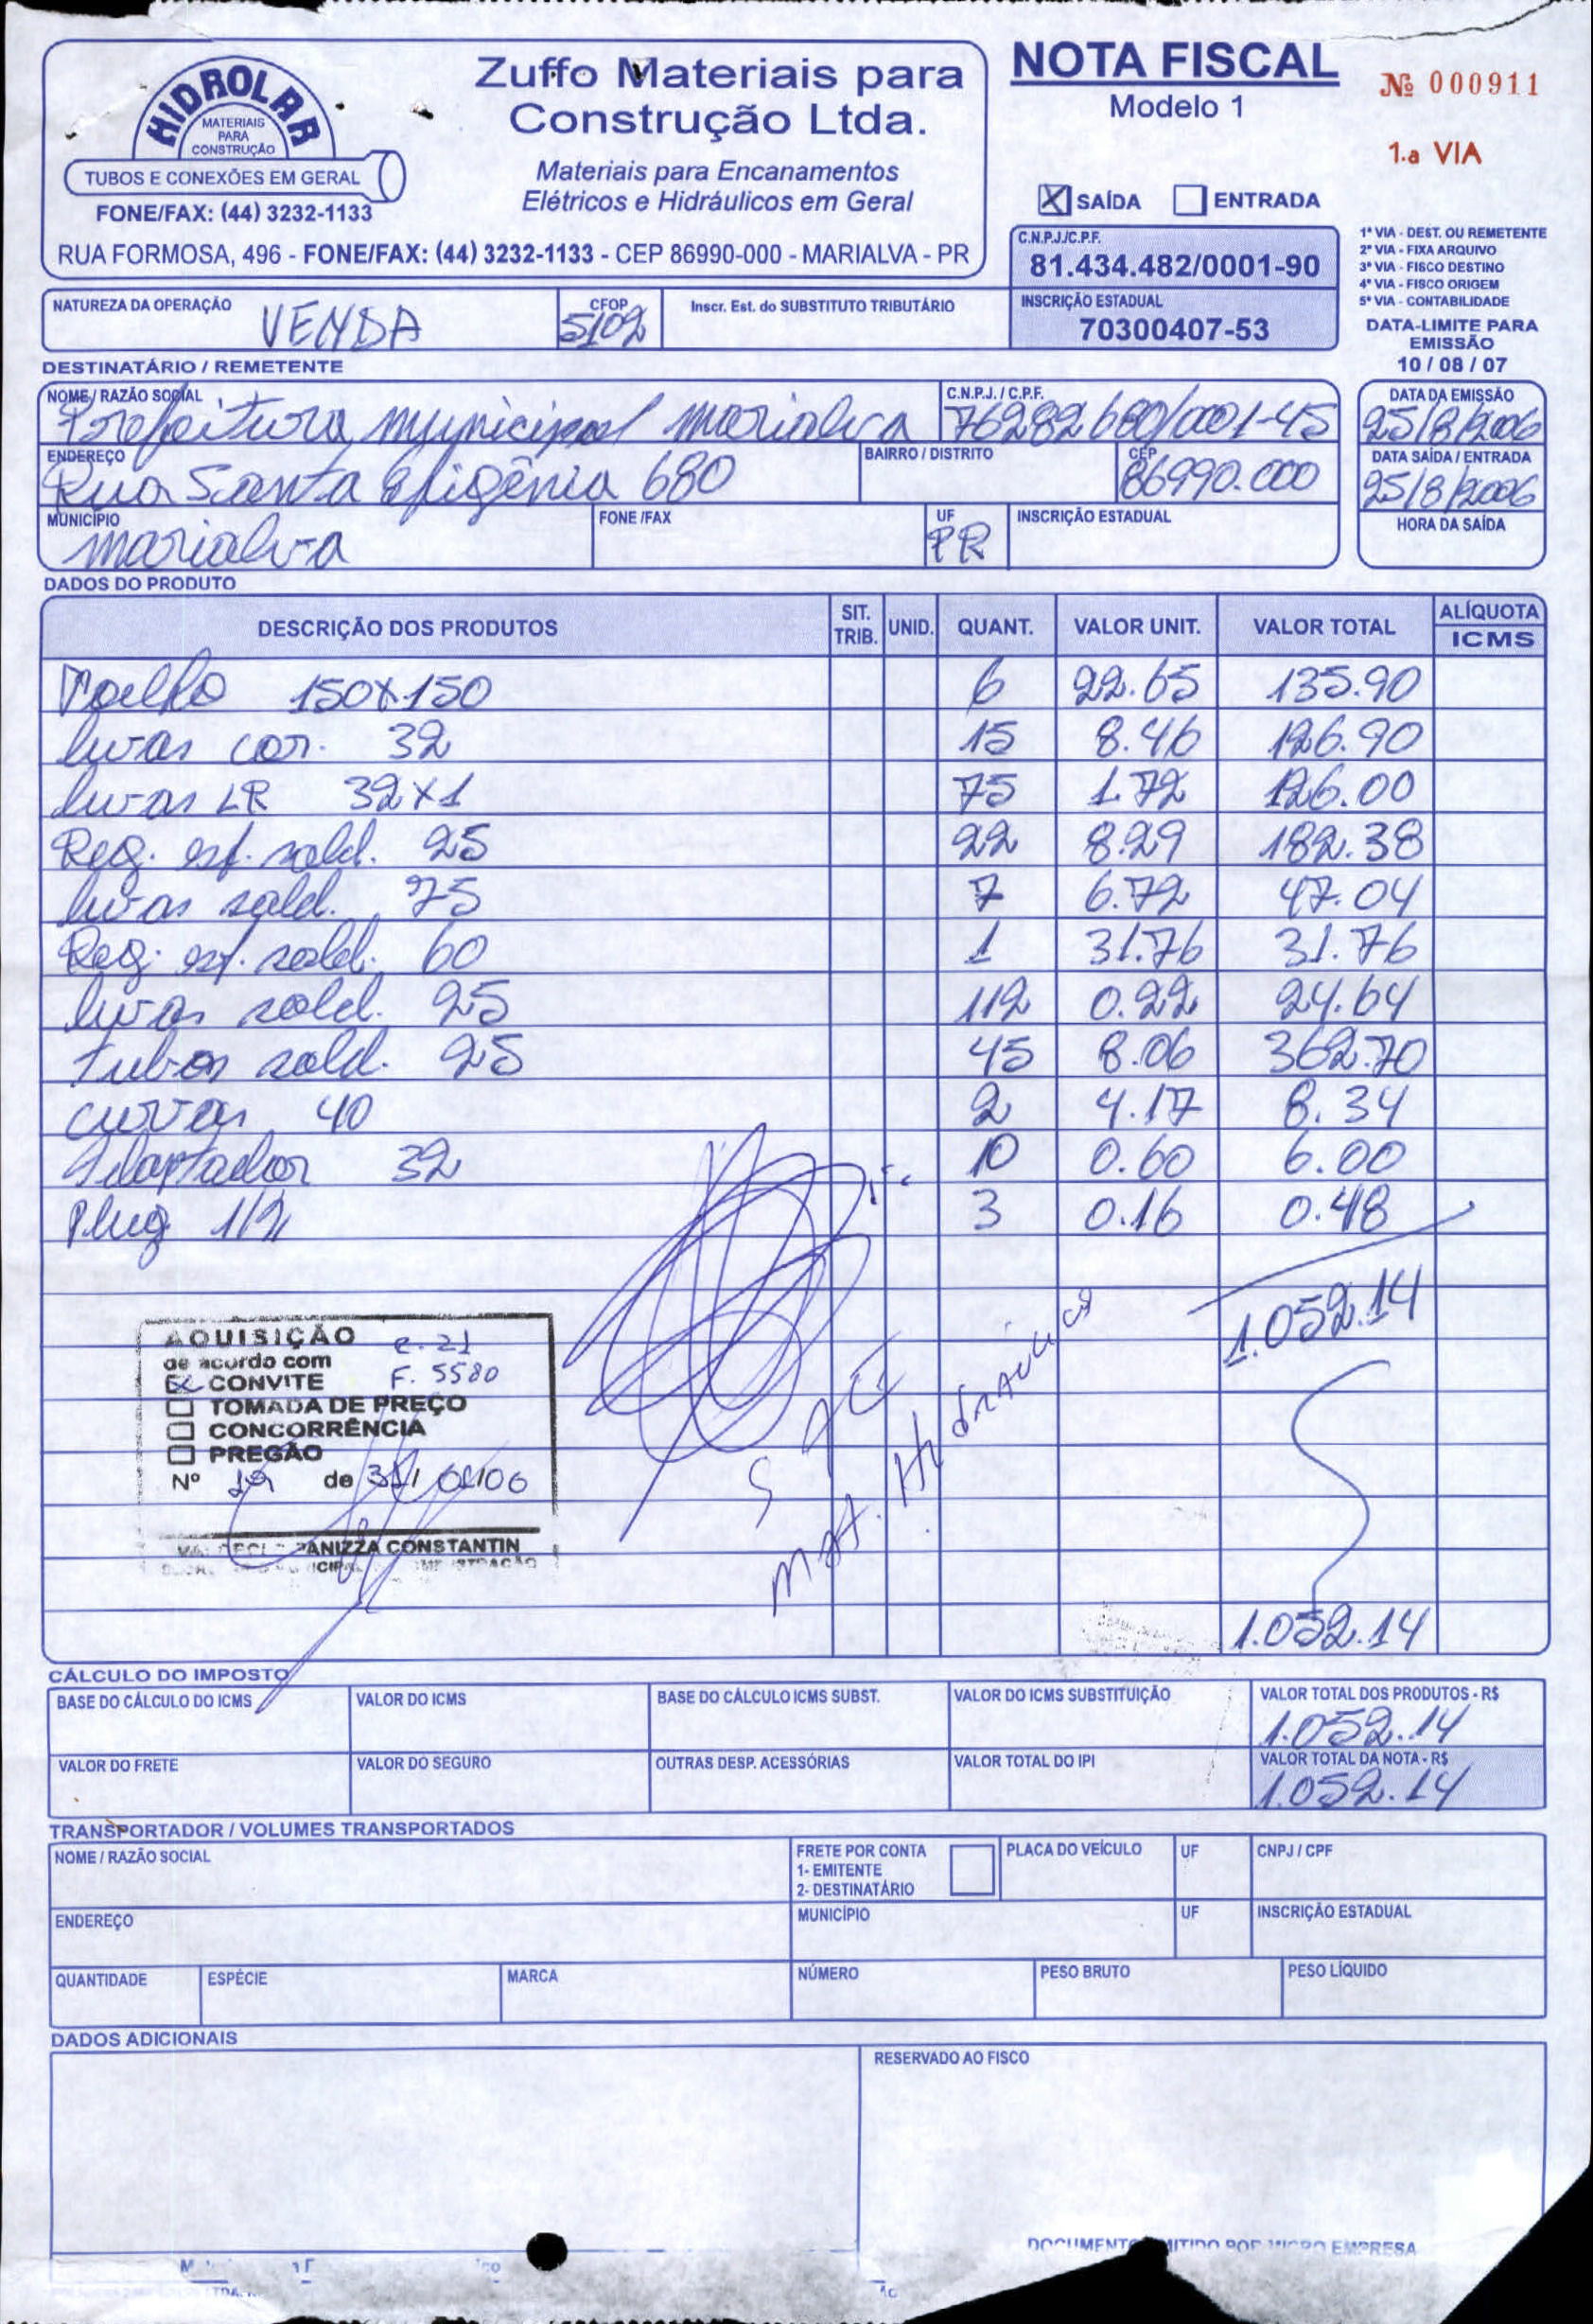 HIDROLAR
MATERIAIS
PARA
CONSTRUÇÃO
TUBOS E CONEXÕES EM GERAL
FONE/FAX: (44) 3232-1133
Zuffo Materiais para
Construção Ltda.
Materiais para Encanamentos
Elétricos e Hidráulicos em Geral
RUA FORMOSA, 496 - FONE/FAX: (44) 3232-1133 - CEP 86990-000 - MARIALVA - PR
NOTA FISCAL
Modelo 1
Nº 000911
1.a VIA
X SAÍDA ENTRADA
C.N.P.J./C.P.F.
81.434.482/0001-90
INSCRIÇÃO ESTADUAL
70300407-53
1ª VIA - DEST. OU REMETENTE
2ª VIA - FIXA ARQUIVO
3ª VIA - FISCO DESTINO
4ª VIA - FISCO ORIGEM
5ª VIA - CONTABILIDADE
DATA-LIMITE PARA
EMISSÃO
10 / 08 / 07
NATUREZA DA OPERAÇÃO VENDA
CFOP 5102
Inscr. Est. do SUBSTITUTO TRIBUTÁRIO
DESTINATÁRIO / REMETENTE
NOME / RAZÃO SOCIAL C.N.P.J. / C.P.F. DATA DA EMISSÃO
Prefeitura municipal marialva 76282680/0001-45 25/8/2006
ENDEREÇO BAIRRO / DISTRITO CEP DATA SAÍDA / ENTRADA
Rua Santa Efigênia 680 86990.000 25/8/2006
MUNICÍPIO FONE /FAX UF INSCRIÇÃO ESTADUAL HORA DA SAÍDA
marialva PR
DADOS DO PRODUTO
DESCRIÇÃO DOS PRODUTOS SIT. TRIB. UNID. QUANT. VALOR UNIT. VALOR TOTAL ALÍQUOTA ICMS
150x150 6 22.65 135.90
luvas cor. 32 15 8.46 126.90
luvas LR 32x1 75 1.72 126.00
Reg. esf. sold. 25 22 8.29 182.38
luvas sold. 75 7 6.72 47.04
Reg. esf. sold. 60 1 31.76 31.76
luvas sold. 25 112 0.22 24.64
tubos sold. 25 45 8.06 362.70
curvas 40 2 4.17 8.34
Adaptador 32 10 0.60 6.00
Plug 1/2 3 0.16 0.48
1.052.14
AQUISIÇÃO
de acordo com
CONVITE
TOMADA DE PREÇO
CONCORRÊNCIA
PREGÃO
C. 21
F. 5580
Nº 19 de 31/01/06
PANIZZA CONSTANTIN
Mat. Hidraulico
1.052.14
CÁLCULO DO IMPOSTO
BASE DO CÁLCULO DO ICMS VALOR DO ICMS BASE DO CÁLCULO ICMS SUBST. VALOR DO ICMS SUBSTITUIÇÃO VALOR TOTAL DOS PRODUTOS - R$
1.052.14
VALOR DO FRETE VALOR DO SEGURO OUTRAS DESP. ACESSÓRIAS VALOR TOTAL DO IPI VALOR TOTAL DA NOTA - R$
1.052.14
TRANSPORTADOR / VOLUMES TRANSPORTADOS
NOME / RAZÃO SOCIAL FRETE POR CONTA PLACA DO VEÍCULO UF CNPJ / CPF
1- EMITENTE
2- DESTINATÁRIO
ENDEREÇO MUNICÍPIO UF INSCRIÇÃO ESTADUAL
QUANTIDADE ESPÉCIE MARCA NÚMERO PESO BRUTO PESO LÍQUIDO
DADOS ADICIONAIS
RESERVADO AO FISCO
EMPRESA